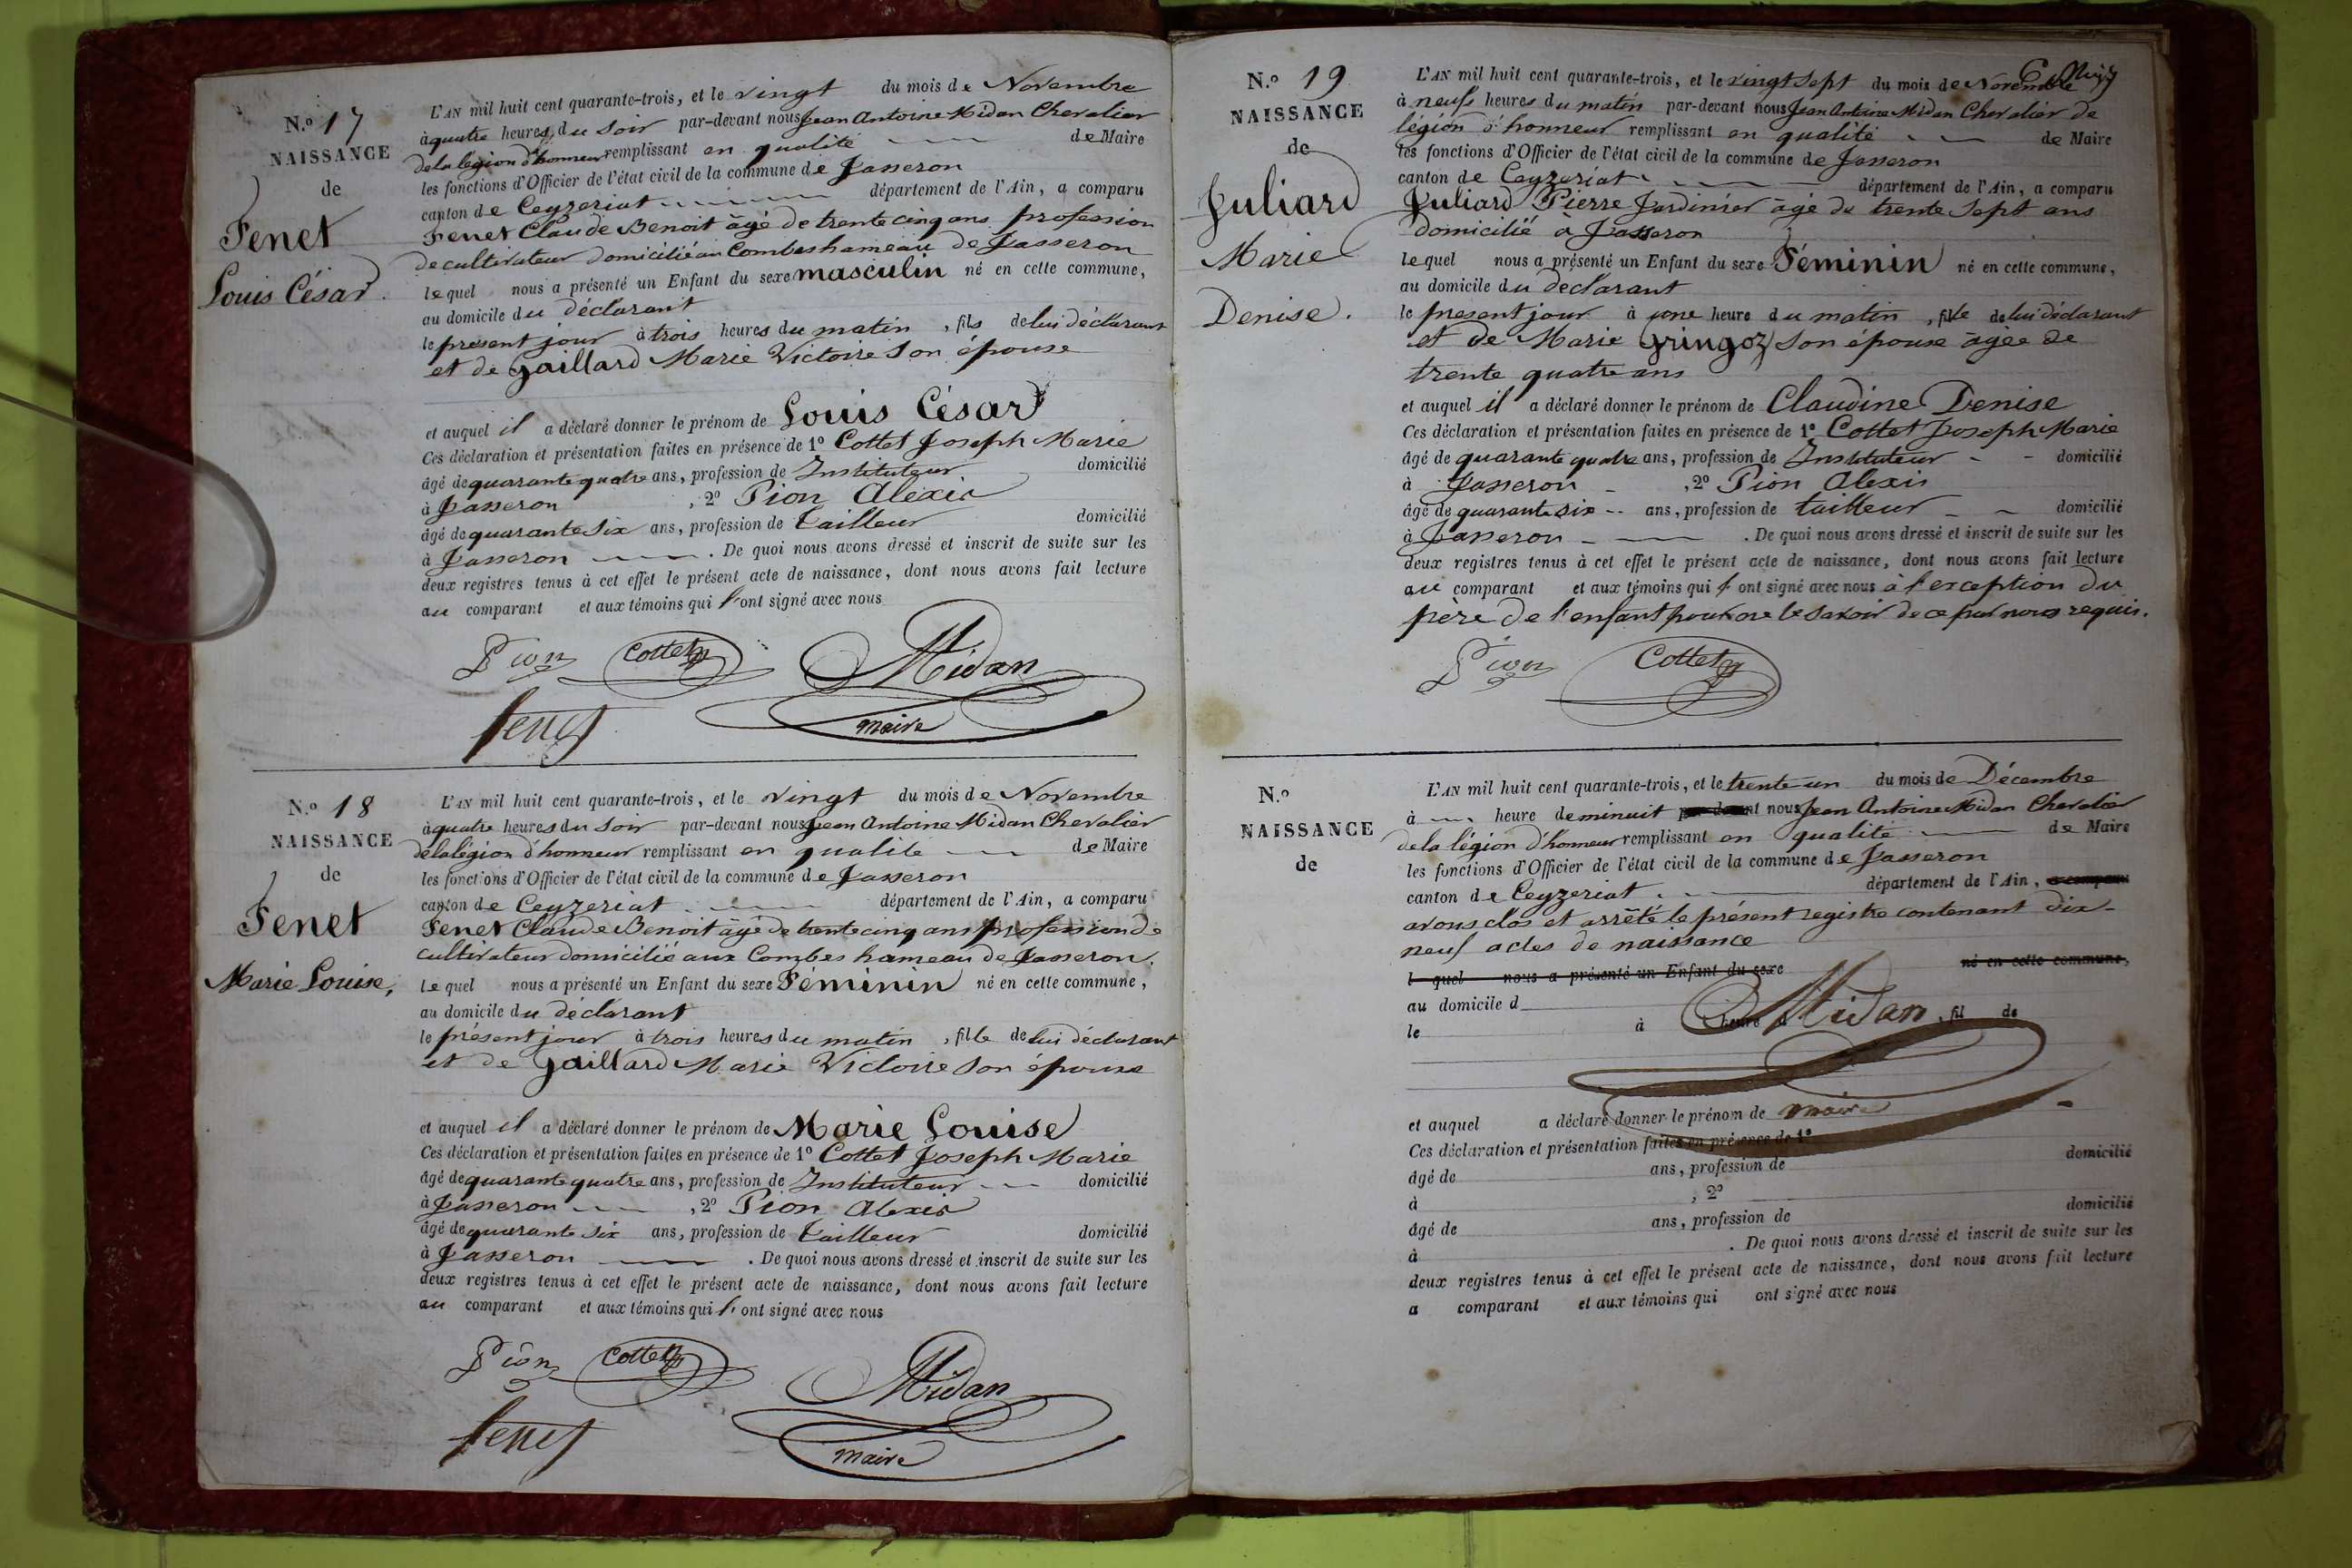 N.o 17
NAISSANCE
de
Fenet
Louis César.
L'AN mil huit cent quarante-trois, et le vingt du mois de Novembre
à quatre heures du soir par-devant nous Jean Antoine Midan Chevalier
de la légion d'honneur remplissant en qualité de Maire
les fonctions d'Officier de l'état civil de la commune de Jasseron
canton de Ceyzeriat département de l'Ain, a comparu
Fenet Claude Benoit âgé de trente cinq ans profession
de cultivateur domicilié au Combes hameau de Jasseron
lequel nous a présenté un Enfant du sexe masculin né en cette commune,
au domicile du déclarant
le présent jour à trois heures du matin, fils de lui déclarant
et de Gaillard Marie Victoire son épouse
et auquel il a déclaré donner le prénom de Louis César
Ces déclaration et présentation faites en présence de 1o Cottet Joseph Marie
âgé de quarante quatre ans, profession de Instituteur domicilié
à Jasseron , 2o Pion Alexis
âgé de quarante six ans, profession de tailleur domicilié
à Jasseron . De quoi nous avons dressé et inscrit de suite sur les
deux registres tenus à cet effet le présent acte de naissance, dont nous avons fait lecture
au comparant et aux témoins qui l'ont signé avec nous
Pion Cottet Midan
fenet maire
N.o 18
NAISSANCE
de
Fenet
Marie Louise,
L'AN mil huit cent quarante-trois, et le vingt du mois de Novembre
à quatre heures du soir par-devant nous Jean Antoine Midan Chevalier
de la légion d'honneur remplissant en qualité de Maire
les fonctions d'Officier de l'état civil de la commune de Jasseron
canton de Ceyzeriat département de l'Ain, a comparu
Fenet Claude Benoit âgé de trente cinq ans profession de
cultivateur domicilié aux Combes hameau de Jasseron.
lequel nous a présenté un Enfant du sexe Féminin né en cette commune,
au domicile du déclarant
le présent jour à trois heures du matin, fille de lui déclarant
et de Gaillard Marie Victoire son épouse
et auquel il a déclaré donner le prénom de Marie Louise
Ces déclaration et présentation faites en présence de 1o Cottet Joseph Marie
âgé de quarante quatre ans, profession de Instituteur domicilié
à Jasseron , 2o Pion Alexis
âgé de quarante six ans, profession de tailleur domicilié
à Jasseron . De quoi nous avons dressé et inscrit de suite sur les
deux registres tenus à cet effet le présent acte de naissance, dont nous avons fait lecture
au comparant et aux témoins qui l'ont signé avec nous
Pion Cottet Midan
fenet maire
N.o 19
NAISSANCE
de
Juliard
Marie
Denise.
L'AN mil huit cent quarante-trois, et le vingt sept du mois de Novembre
à neufs heures du matin par-devant nous Jean Antoine Midan Chevalier de
légion d'honneur remplissant en qualité de Maire
les fonctions d'Officier de l'état civil de la commune de Jasseron
canton de Ceyzeriat département de l'Ain, a comparu
Juliard Pierre Jardinier âgé de trente sept ans
domicilié à Jasseron
lequel nous a présenté un Enfant du sexe Féminin né en cette commune,
au domicile du déclarant
le présent jour à une heure du matin, fille de lui déclarant
et de Marie Gringoz son épouse âgée de
trente quatre ans
et auquel il a déclaré donner le prénom de Claudine Denise
Ces déclaration et présentation faites en présence de 1o Cottet Joseph Marie
âgé de quarante quatre ans, profession de Instituteur domicilié
à Jasseron , 2o Pion Alexis
âgé de quarante six ans, profession de tailleur domicilié
à Jasseron . De quoi nous avons dressé et inscrit de suite sur les
deux registres tenus à cet effet le présent acte de naissance, dont nous avons fait lecture
au comparant et aux témoins qui l'ont signé avec nous à l'exception du
père de l'enfant pour ne le savoir de ce par nous requis.
Pion Cottet
N.o
NAISSANCE
de
L'AN mil huit cent quarante-trois, et le trente un du mois de Décembre
à heure de minuit par-devant nous Jean Antoine Midan Chevalier
de la légion d'honneur remplissant en qualité de Maire
les fonctions d'Officier de l'état civil de la commune de Jasseron
canton de Ceyzeriat département de l'Ain, a comparu
avons clos et arrêté le présent registre contenant dix-
neuf actes de naissance
l quel nous a présenté un Enfant du sexe né en cette commune,
au domicile d
le à heure d Midan , fil de
et auquel a déclaré donner le prénom de maire
Ces déclaration et présentation faites en présence de 1o
âgé de ans, profession de domicilié
à , 2o
âgé de ans, profession de domicilié
à . De quoi nous avons dressé et inscrit de suite sur les
deux registres tenus à cet effet le présent acte de naissance, dont nous avons fait lecture
a comparant et aux témoins qui ont signé avec nous